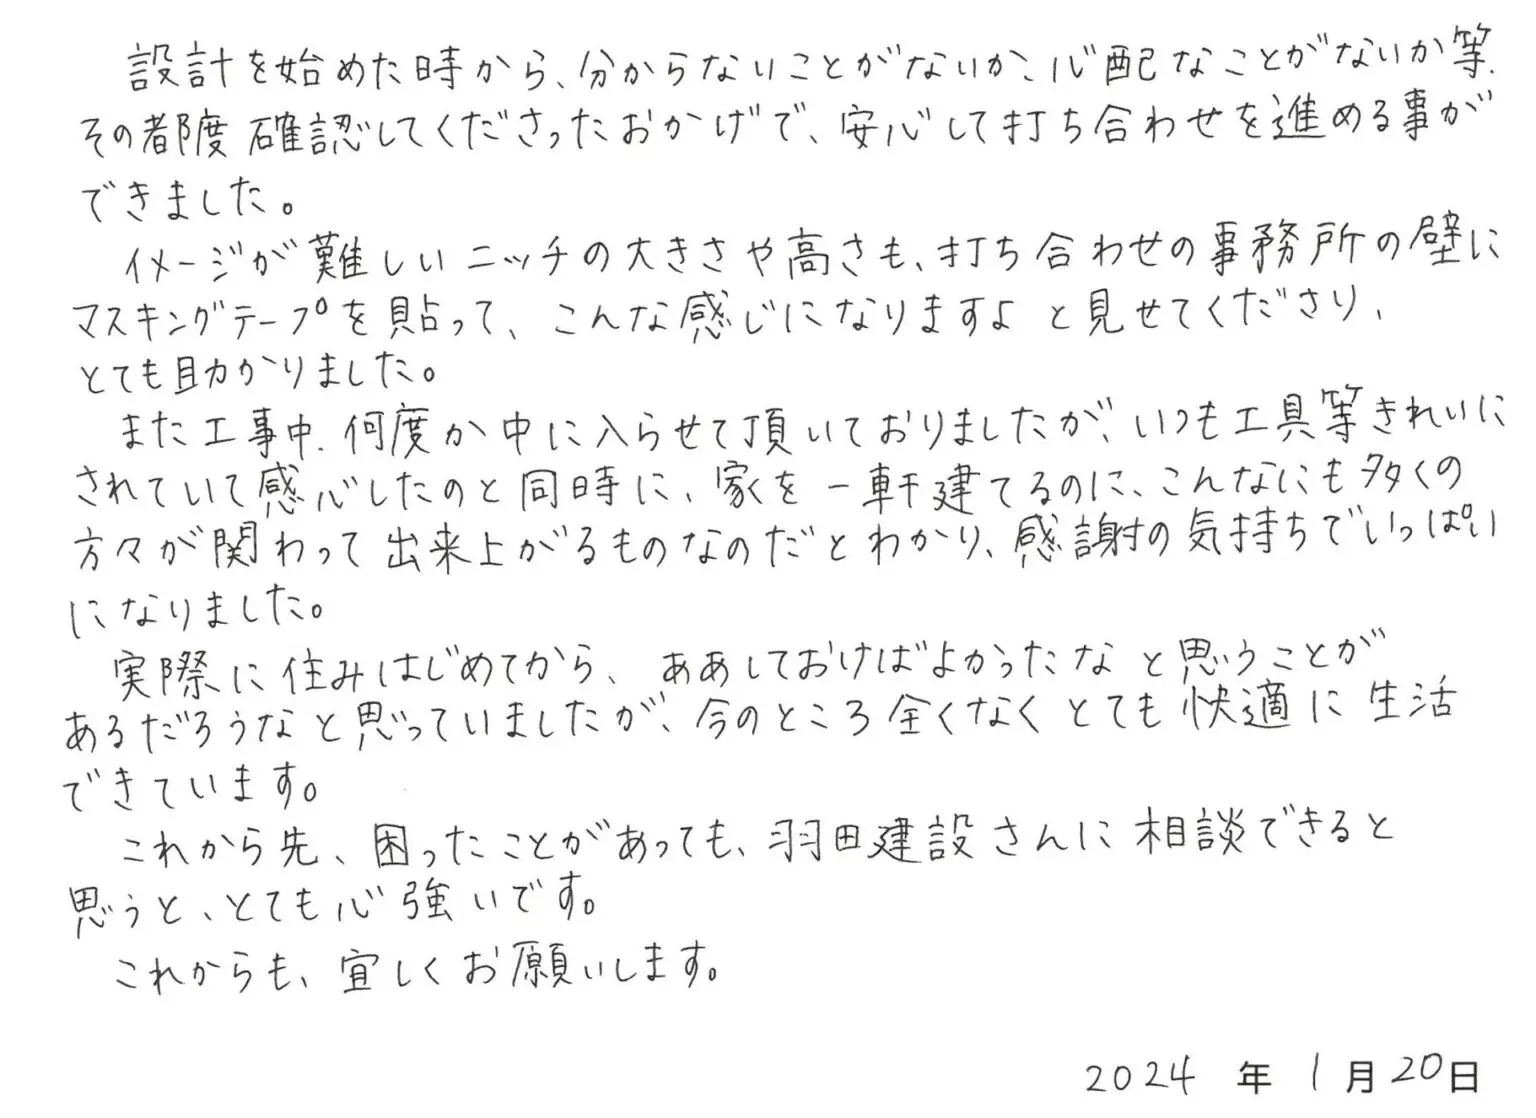 設計を始めた時から、分からないことがないか、心配なことがないか等、
その都度確認してくださったおかげで、安心して打ち合わせを進める事が
できました。
イメージが難しいニッチの大きさや高さも、打ち合わせの事務所の壁に
マスキングテープを貼って、こんな感じになりますよと見せてくださり、
とても助かりました。
また工事中、何度か中に入らせて頂いておりましたが、いつも工具等きれいに
されていて感心したのと同時に、家を一軒建てるのに、こんなにも多くの
方々が関わって出来上がるものなのだとわかり、感謝の気持ちでいっぱい
になりました。
実際に住みはじめてから、ああしておけばよかったなと思うことが
あるだろうなと思っていましたが、今のところ全くなくとても快適に生活
できています。
これから先、困ったことがあっても、羽田建設さんに相談できると
思うと、とても心強いです。
これからも、宜しくお願いします。
2024 年 1 月 20 日